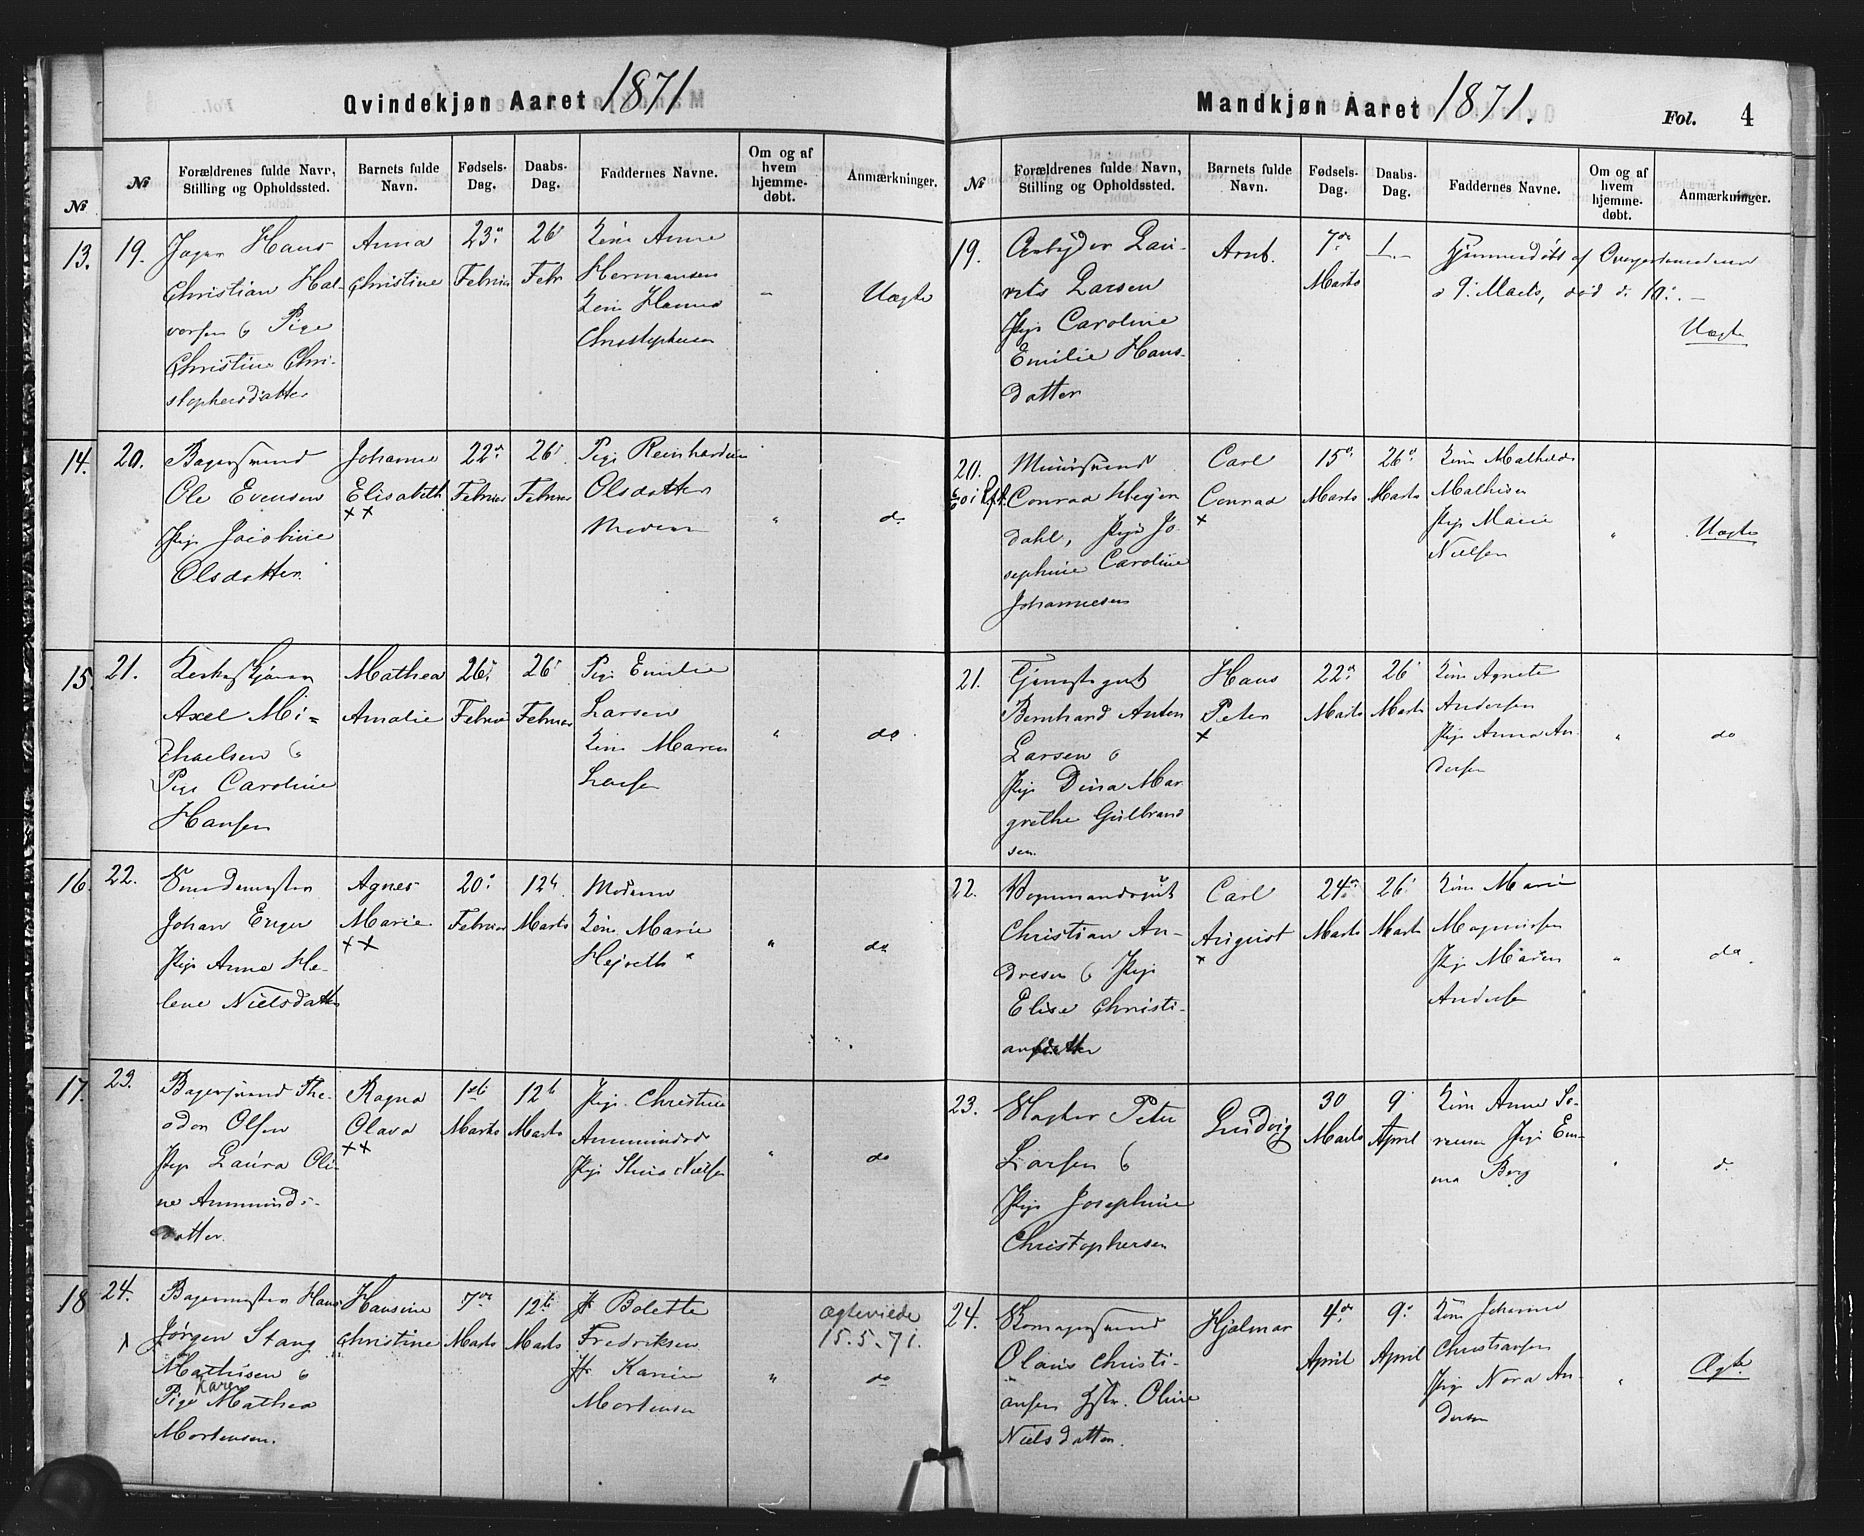 Qvindekjøn Aaret 1871
№
№
Forældrenes fulde Navn,
Stilling og Opholdssted.
Barnets fulde
Navn.
Fødsels-
Dag.
Daabs-
Dag.
Faddernes Navne.
Om og af
hvem
hjemme-
døbt.
Anmærkninger.
13.
19.
Hans
Christian Hal-
vorsen & Pige
Christine Chri-
stophersdatter
Anna
Christine
23
Februar
26
Febr
Anne
Hermansen
Hanna
Christophersen
Uægte
14.
20.
Bagersvend
Ole Evensen
Pige Jacobine
Olsdatter
Johanne
Elisabeth
××
22
Februar
26
Februar
Pige Reinhardine
Olsdatter
Moderen
"
do
15
21.
Axel Mi=
chaelsen &
Pige Caroline
Hansen
Mathea
Amalie
26
Februar
26
Februar
Pige Emilie
Larsen
Maren
Larsen
"
do.
16
22.
Smedemester
Johan Enger
Pige Anne He-
lene Nielsdatter
Agnes
Marie
××
20
Februar
12
Marts
Moderen
Marie
"
do
17
23.
Bagersvend The-
odor Olsen
Pige Laura Oli-
ne Ammunds-
datter.
Ragna
Olava
××
1ste
Marts
12te
Marts
Pige Christine
Pige Nielsen
"
do
18
24.
Bagermester Hans
Jørgen Stang
Mathisen &
Karen
Pige Mathea
Mortensen.
Hansine
Christine
7de
Marts
12te
Marts
Jfr Bolette
Fredriksen
Jfr Karine
Mortensen
"
Ægteviede
15.5.71.
do
Mandkjøn Aaret 1871.
Fol. 4
№
Forældrenes fulde Navn,
Stilling og Opholdssted.
Barnets fulde
Navn.
Fødsels-
Dag.
Daabs-
Dag.
Faddernes Navne.
Om og af
hvem
hjemme-
døbt.
Anmærkninger.
19.
Arbeider Lau-
rits Larsen
Pige Caroline
Emilie Hans-
datter
Arnt.
7de
Marts
Hjemmedøbt af
d 9 Marts, død d. 10.
Uægte
20.
Muursvend
Conrad
dahl, Pige Jo-
sephine Caroline
Johannesen
Carl
Conrad
×
15
Marts
26
Marts
Mathilde
Mathisen
Pige Marie
Nielsen
"
Uægte
21.
Tjenestegut
Bernhard Anton
Larsen &
Pige Dina Mar-
grethe Gulbrand
sen.
Hans
Peter
×
22
Marts
26
Marts
Agnete
Andersen
Pige Anna An-
dersen
"
do
22.
Vognmandsgut
Christian An-
dresen & Pige
Elise Christi-
ansdatter
Carl
August
×
24
Marts
26
Marts
Marie
Magnussen
Pige Maren
Andersen
"
do.
23.
Slagter Peter
Larsen &
Pige Josephine
Christophersen
Ludvig
30
Marts
9
April
Anne So-
rensen Pige Em-
ma Berg
d.
24.
Skomagersvend
Olaus Christi-
ansen Hstr. Oline
Nielsdatter.
Hjalmar
4de
April
9
April
Johanne
Christiansen
Pige Nora An-
dersen
"
Ægte